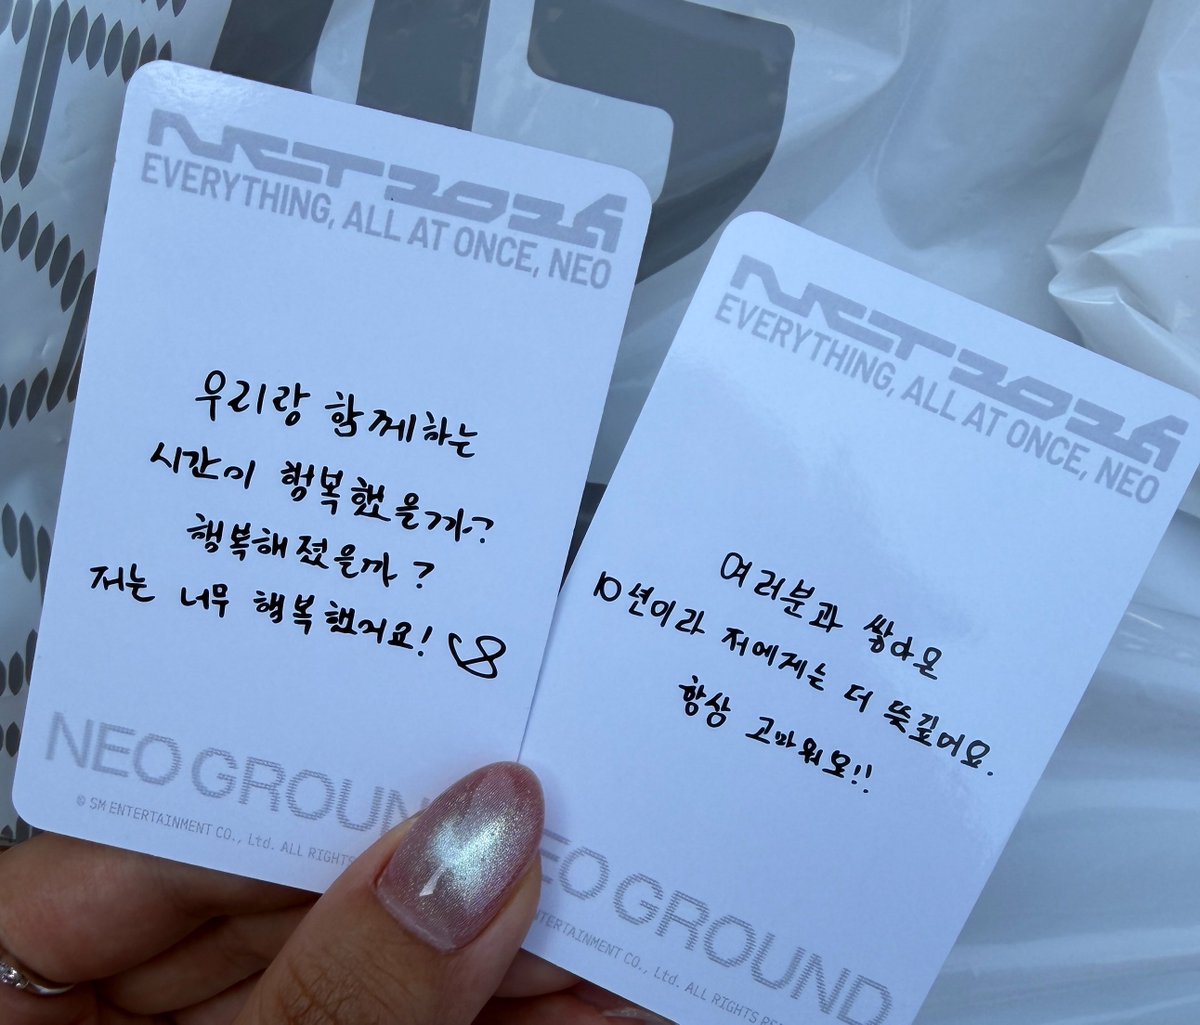 NCT 2026
EVERYTHING, ALL AT ONCE, NEO
우리랑 함께하는
시간이 행복했을까?
행복해졌을까?
저는 너무 행복했거요!
NEO GROUN
© SM ENTERTAINMENT CO., Ltd. ALL RIGHTS
NCT 2026
EVERYTHING, ALL AT ONCE, NEO
여러분과 쌓아온
10년이라 저에게는 더 뜻깊어요.
항상 고마워요!!
EO GROUND
ENTERTAINMENT CO., Ltd. ALL RIGHTS RE